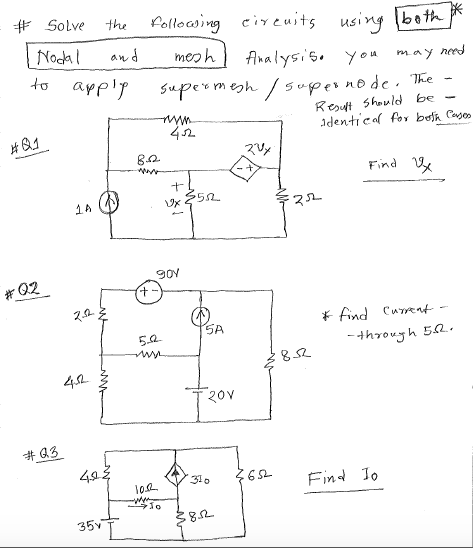 # Solve the following circuits using both *
Nodal and mesh Analysis. You may need
to apply supermesh / supernode. The -
Result should be -
Identical for both Cases
#Q1
4Ω
8Ω
2Vx
- +
+
Vx
-
5Ω
1A
2Ω
Find Vx
#Q2
90V
+ -
2Ω
5A
5Ω
8Ω
4Ω
20V
* find current -
- through 5Ω.
#Q3
4Ω
10Ω
→ Io
3Io
6Ω
8Ω
35V
Find Io